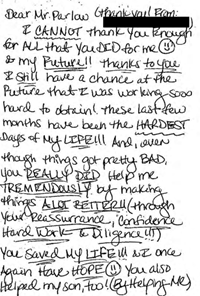 Dear Mr. Parlow (thank you! From:
I CANNOT thank you enough
for ALL that you DID for me
& my Future!! thanks to you
I Still have a chance at the
Future that I was working sooo
hard to obtain! these last few
months have been the HARDEST
Days of my LIFE!!! And, even
though things got pretty BAD,
you REALLY DID Help me
TREMENDOUSLY by making
things ALOT BETTER!! (through
your Reassurance, Confidence
Hard Work & Diligence!!!)
You Saved MY LIFE!!! & I once
Again Have HOPE You also
Helped my son, too! (By Helping Me)